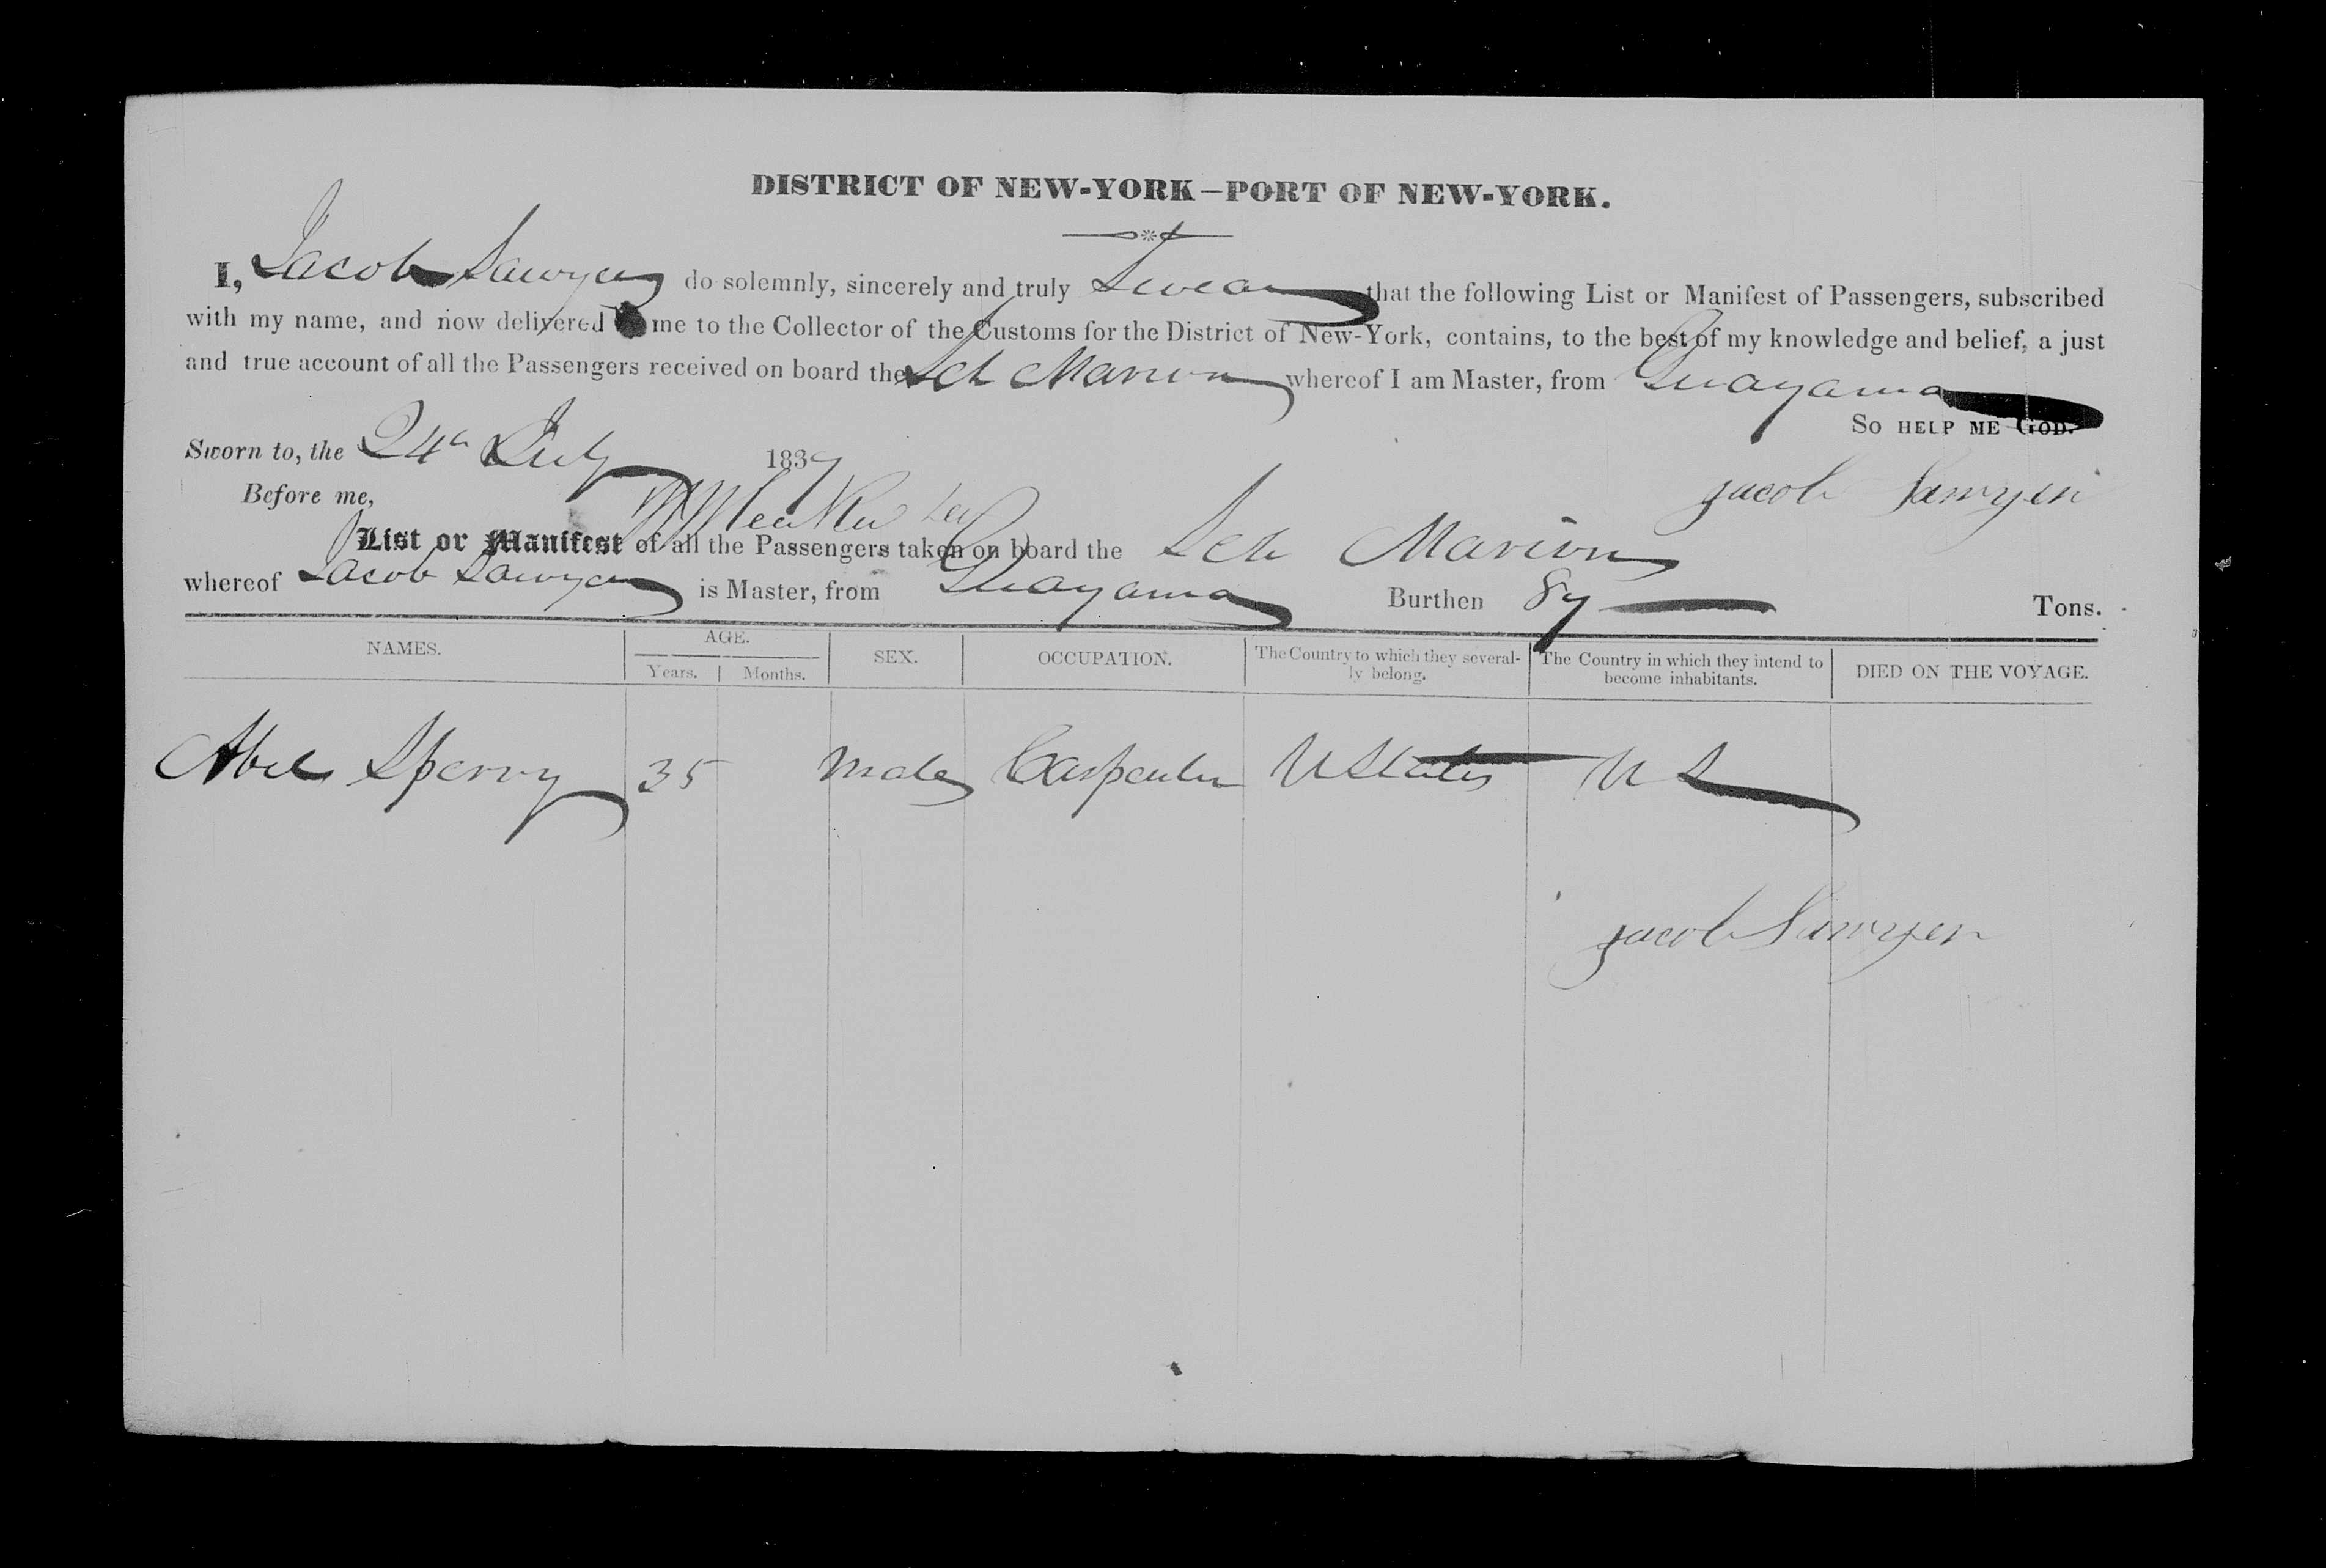 DISTRICT OF NEW-YORK—PORT OF NEW-YORK.
I, Jacob Sawyer do solemnly, sincerely and truly Swear that the following List or Manifest of Passengers, subscribed
with my name, and now delivered me to the Collector of the Customs for the District of New-York, contains, to the best of my knowledge and belief, a just
and true account of all the Passengers received on board the Sch Marion whereof I am Master, from Guayama
So HELP ME GOD.
Sworn to, the 24 July 1837
Jacob Sawyer
Before me,
List or Manifest of all the Passengers taken on board the Sch Marion
whereof Jacob Sawyer is Master, from Guayama Burthen 87 Tons.
NAMES. AGE. SEX. OCCUPATION. The Country to which they several-ly belong. The Country in which they intend to become inhabitants. DIED ON THE VOYAGE.
Years. Months.
Abel Sperry 35 Male Carpenter U States U S
Jacob Sawyer